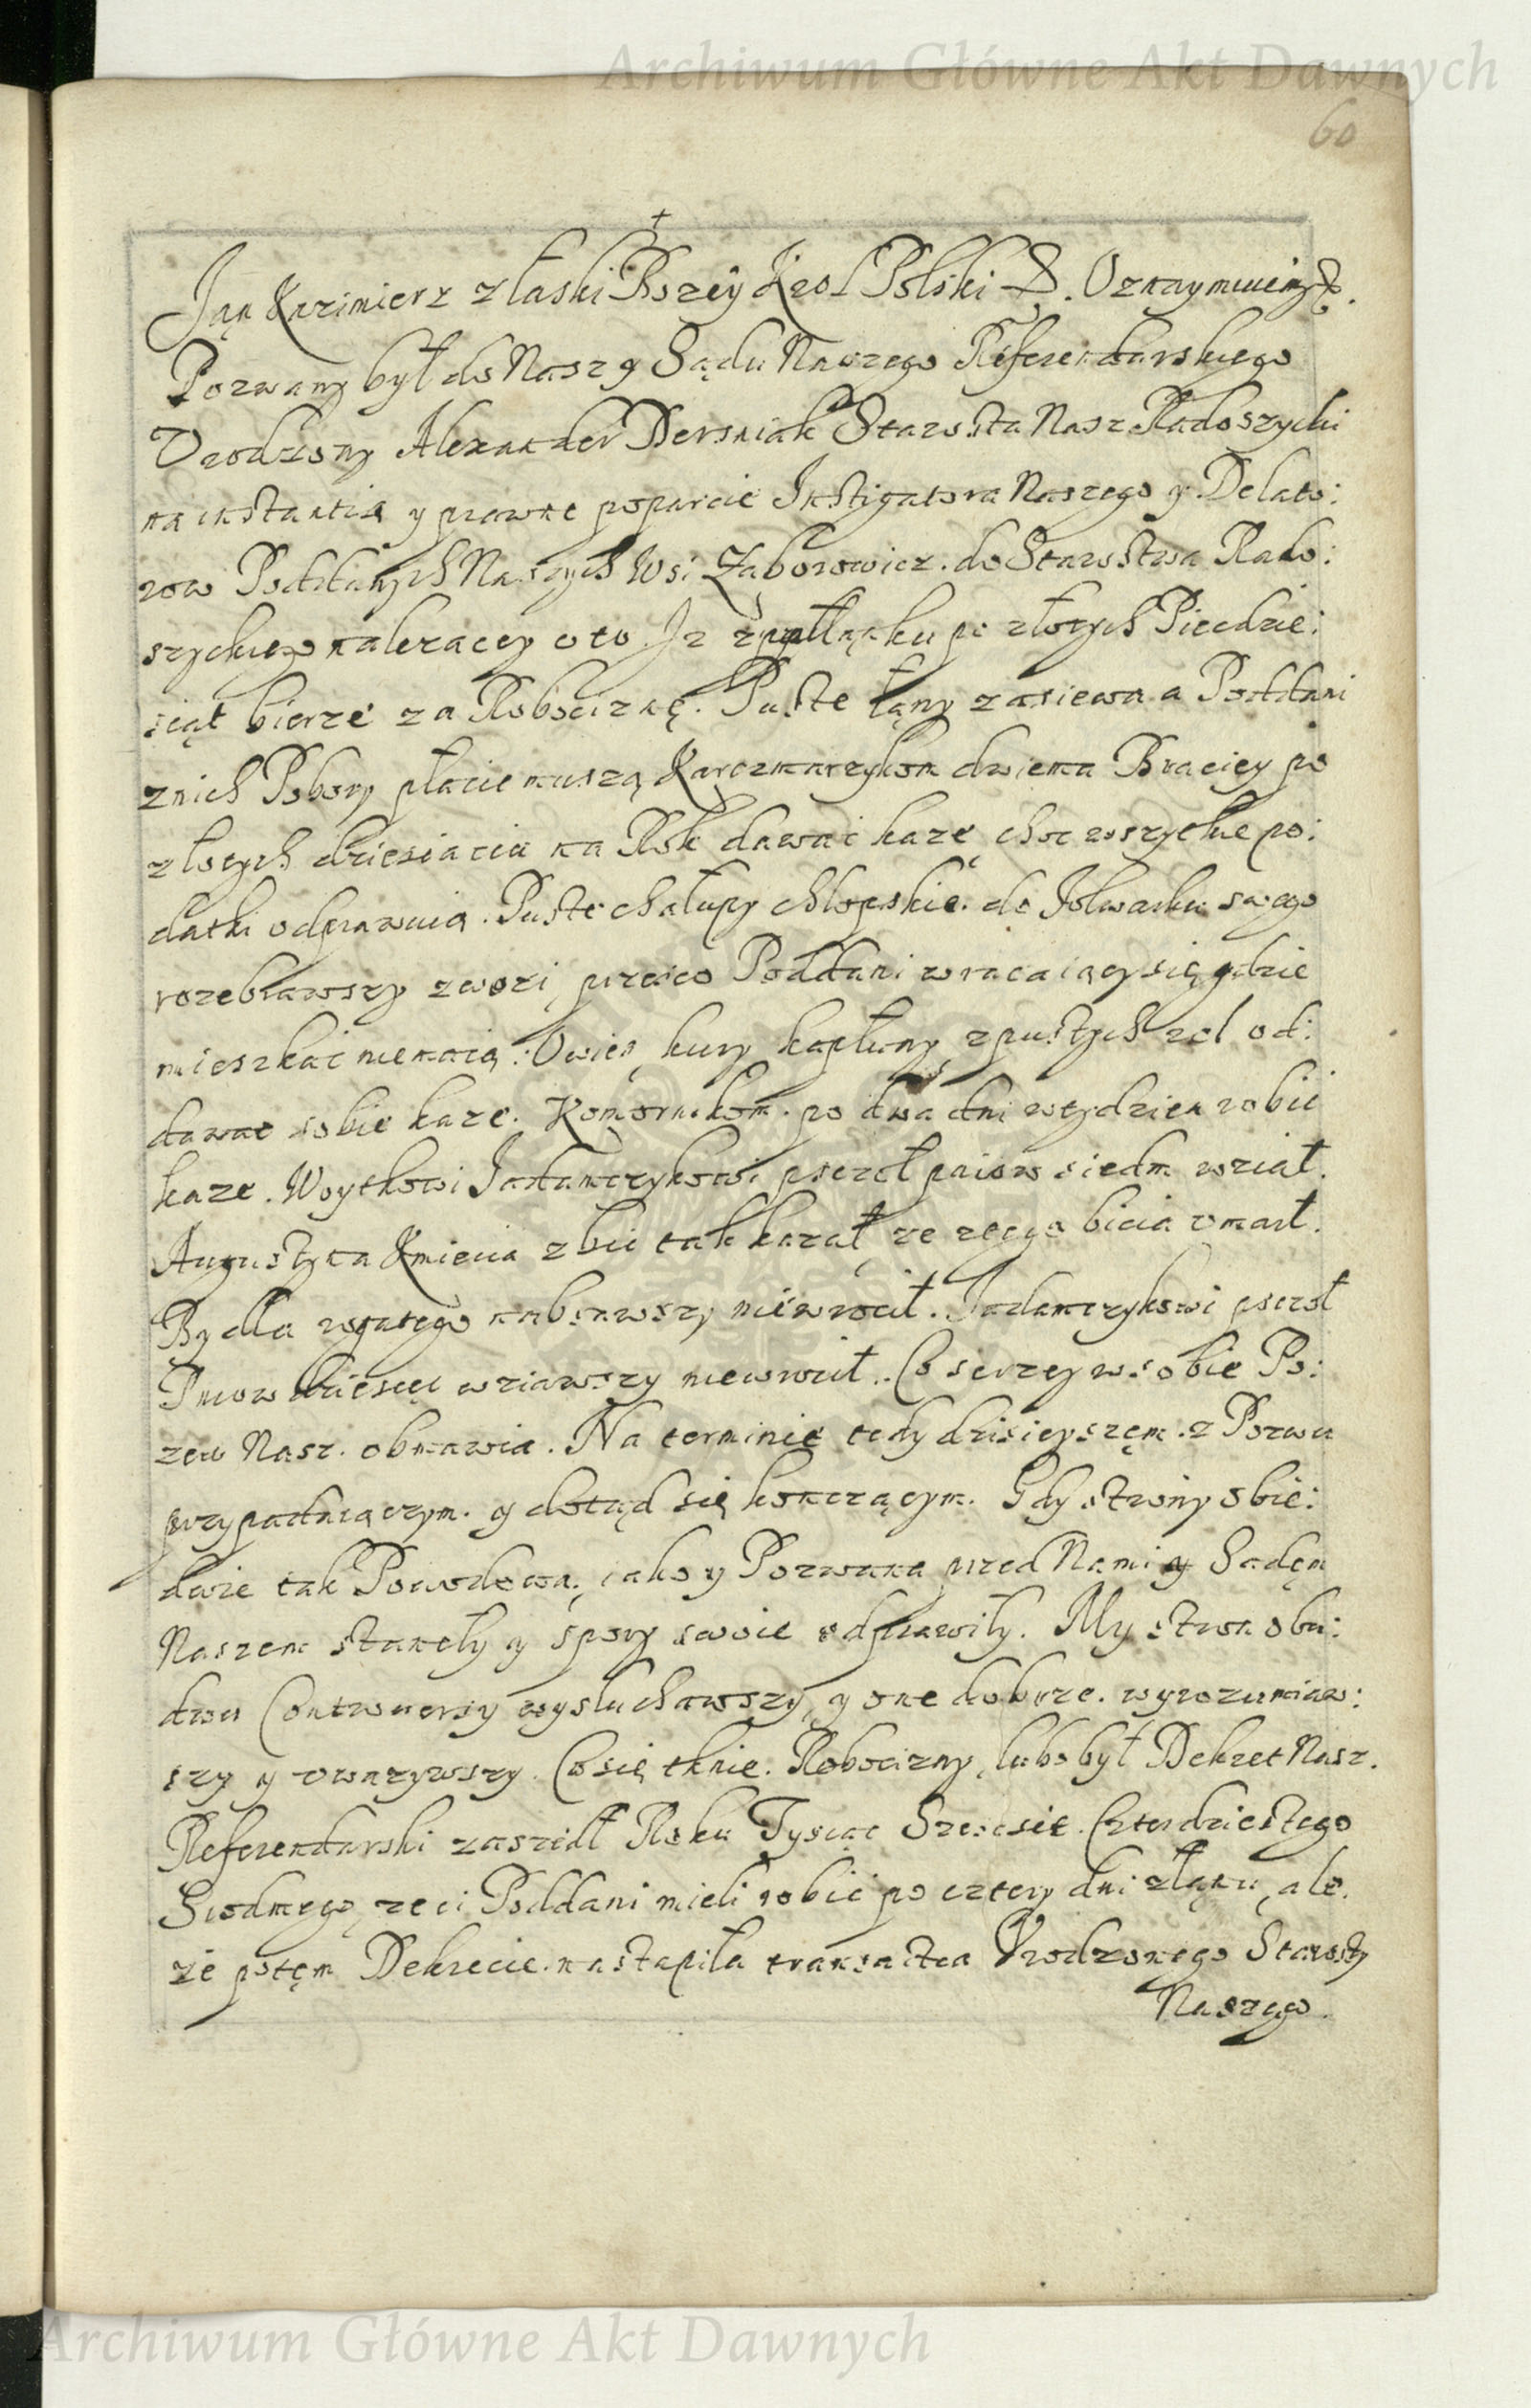 Archiwum Główne Akt Dawnych
60
Jan Kazimierz z łaski Bożey Krol Polski &. Oznaymuiemy &.
Pozwany był do Nasz y Sądu Naszego Referendarskiego
Vrodzony Alexander Dersniak Starosta Nasz Radoszycki
na instantią y prawne poparcie Instigatora Naszego y Delato:
row Poddanych Naszych Wsi Zaborowicz. do Starostwa Rado:
szyckiego należacey o to. Iz z łąnku po złotych Piecdzie:
siąt bierze za Robociznę. Puste łąny zasiewa a Poddani
z nich Pobory płacic muszą Karczmarzykom dwiema Braciey po
złotych dziesiacia na Rok dawac kaze choc wszytkie po:
datki odprawuią. Puste chałupy chłopskie. do Folwarku swego
rozebrawszy zwozi przeco Poddani wracaiący się gdzie
mieszkac niemaią. Owies, kury kapłuny z pustych rol od:
dawac sobie kaze. Komornikom. po dwa dni w tydzien robic
kaze. Woytkowi Jadamczykowi pszczoł pniow siedm wział.
Augustyna Kmiecia zbic tak kazał ze z tego bicia vmarł.
Bydła rogatego nabrawszy niewrocił. Jadamczykowi pszczoł
Pniow dziesięc wziawszy niewrocił. Co szerzey w sobie Po:
zew Nasz. obmawia. Na terminie tedy dzisieyszęm. z Pozwu
przypadaiączym. y dotąd się konczącym. Gdy strony obie:
dwie tak Powodowa, iako y Pozwana przed Nami y Sadęm
Naszem staneły y spory swoie odprawiły. My stron obu:
dwu Controuersy wysłuchawszy, y one dobrze. wyrozumiaw:
szy y vwazywszy. Co się tknie. Robocizny, lubo był Dekret Nasz.
Referendarski zaszedł Roku Tysiąc Szescset. Czterdziestego
Siodmego, ze ci Poddani mieli robic po cztery dni z łąnu, ale.
ze potęm Dekrecie. nastąpiła transactia Vrodzonego Starosty
Naszego.
Archiwum Główne Akt Dawnych